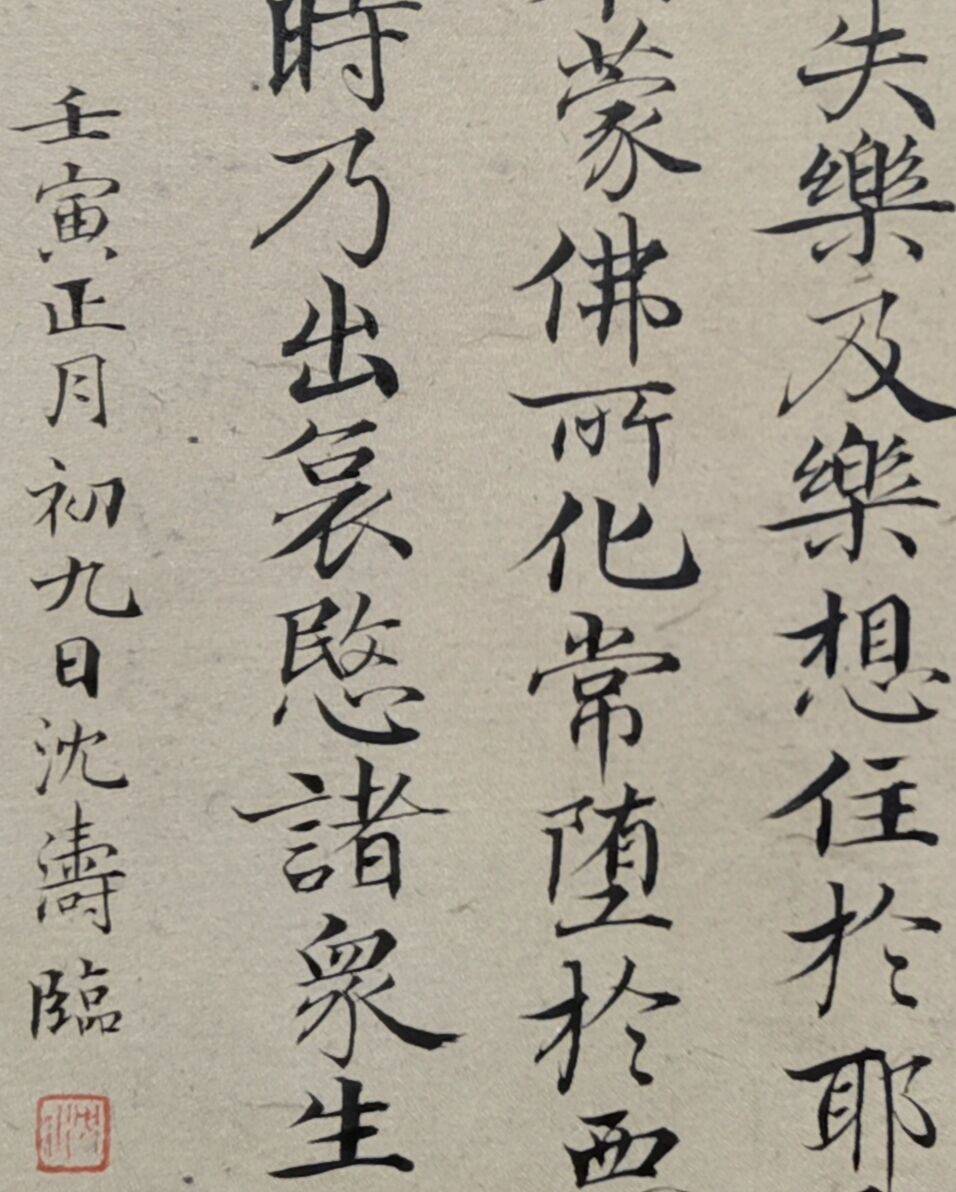 失樂及樂想住於耶
蒙佛所化常墮於
時乃出哀愍諸衆生
壬寅正月初九日沈濤臨